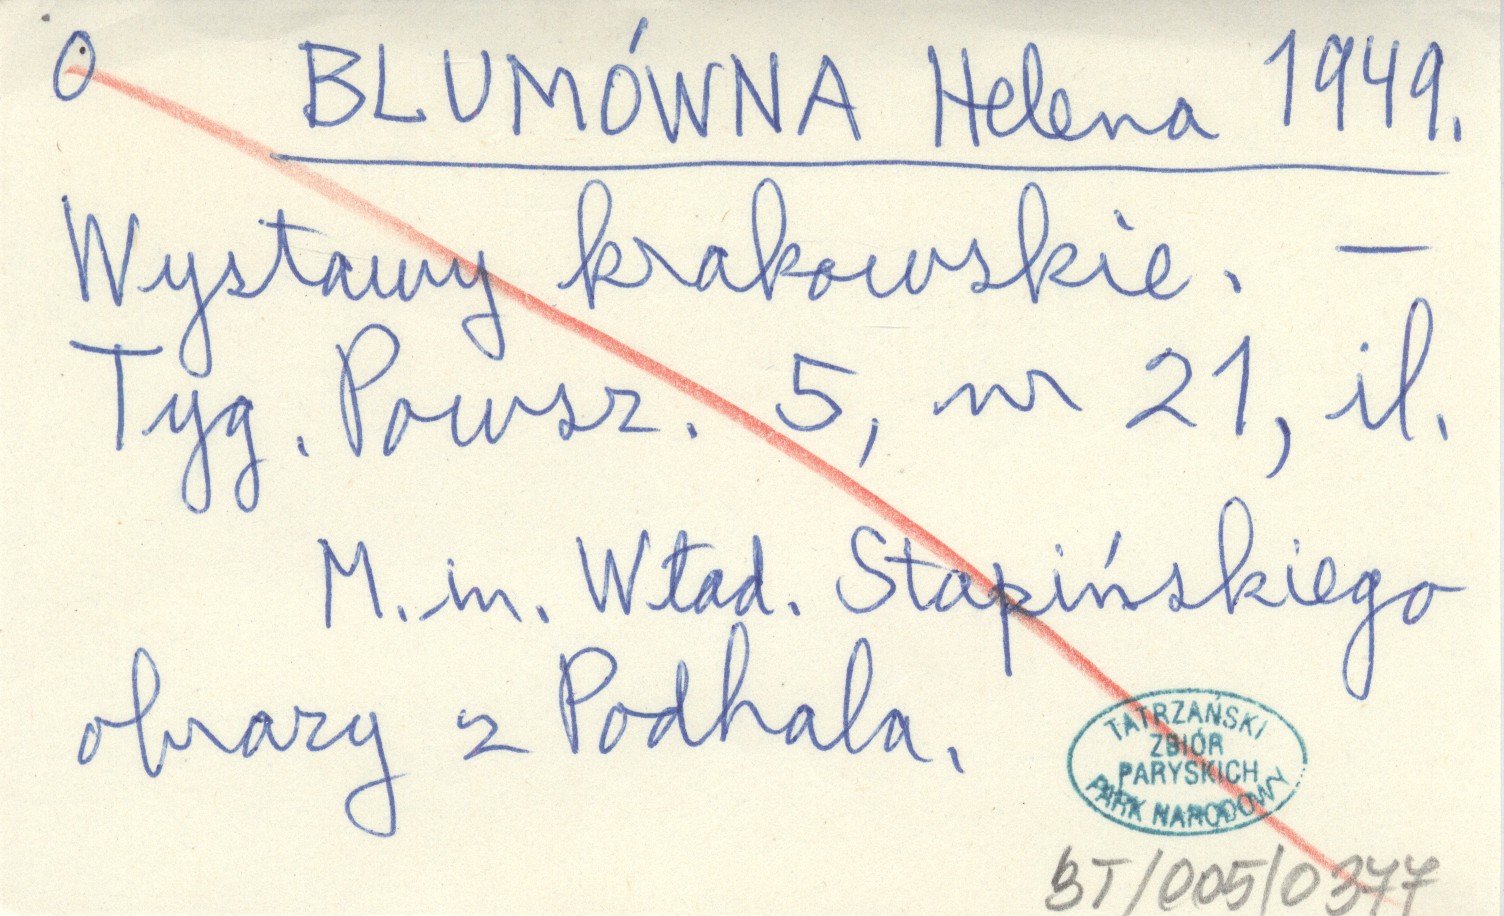 O BLUMÓWNA Helena 1949.
Wystawy krakowskie. —
Tyg. Powsz. 5, nr 21, il.
M. in. Wład. Stapińskiego
obrazy z Podhala.
TATRZAŃSKI
ZBIÓR
PARYSKICH
PARK NARODOWY
BT/005/0377